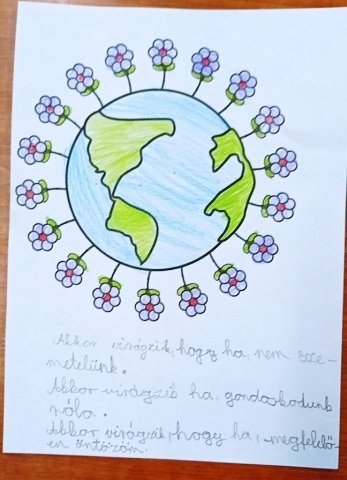 Akkor virágzik, hogy ha nem sze-
metelünk.
Akkor virágzik ha, gondoskodunk
róla.
Akkor virágzik, hogy ha, megfelelő-
en öntözöm.